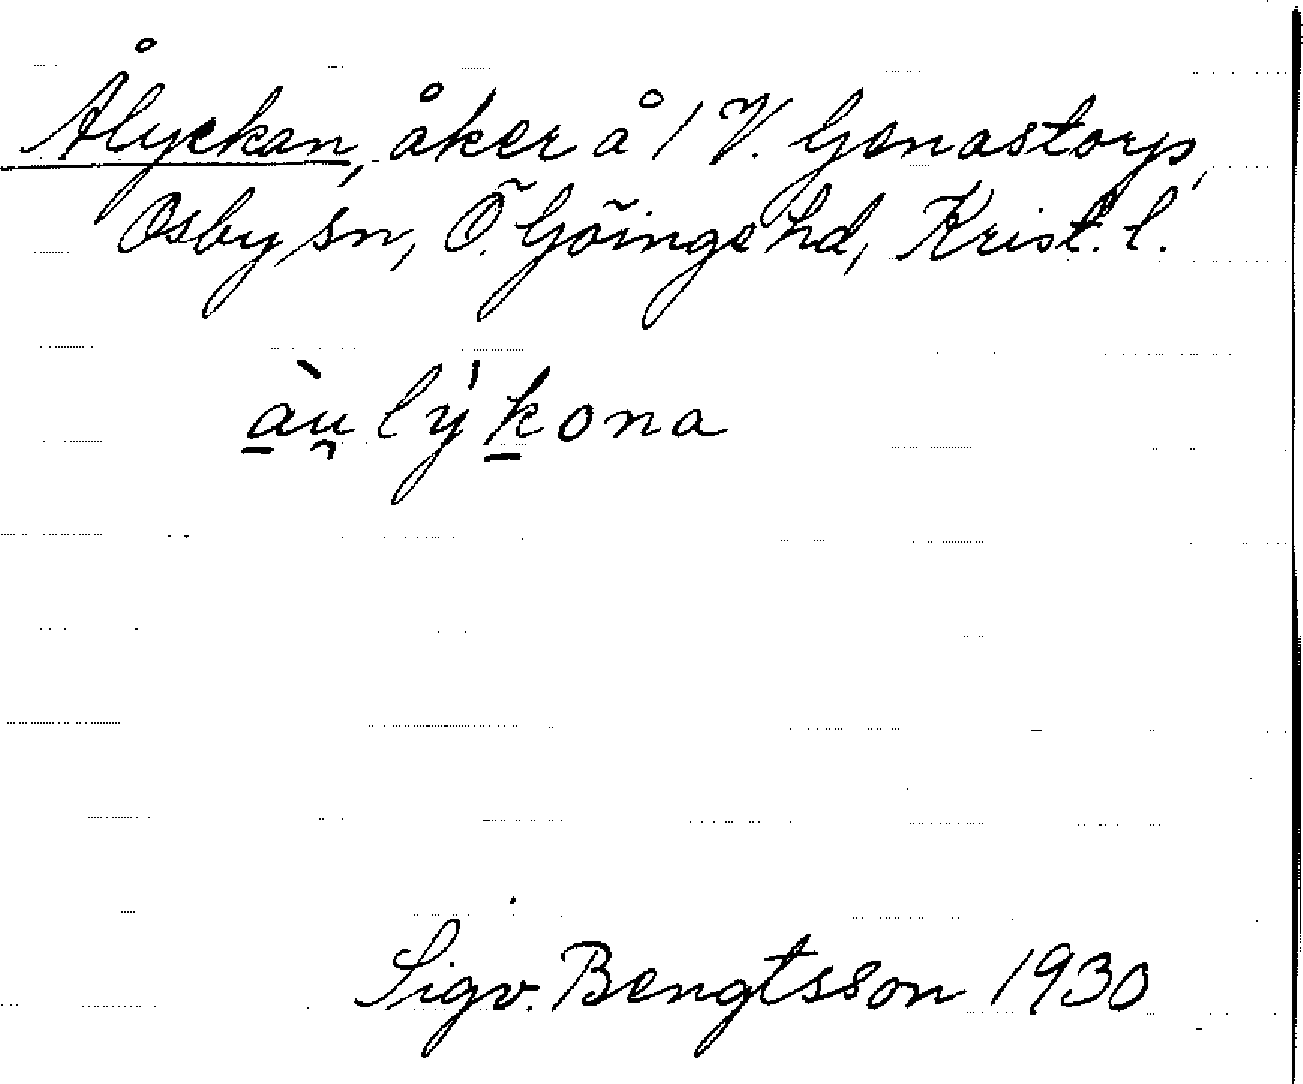 Ålyckan, åker å 1 V. Genastorp,
Osby sn, Ö. Göinge hd, Krist. l.
àu̯lýkona
Sigv. Bengtsson 1930